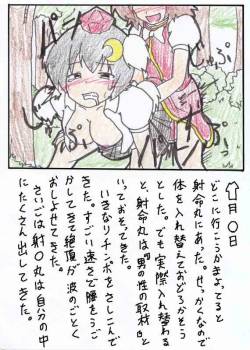 月〇日
どこに行こうかまよってると
射命丸にあった。せっかくなので
体を入れ替えておどろかそう
とした。でも実際入れ替える
と、射命丸は「男の性の取材」と
いっておそってきた。
いきなりチンポをさしこんで
きた。すごい速さで腰をうご
かしてきて絶頂が波のごとく
おしよせてきた。
さいごは射〇丸は自分の中
にたくさん出してきた。